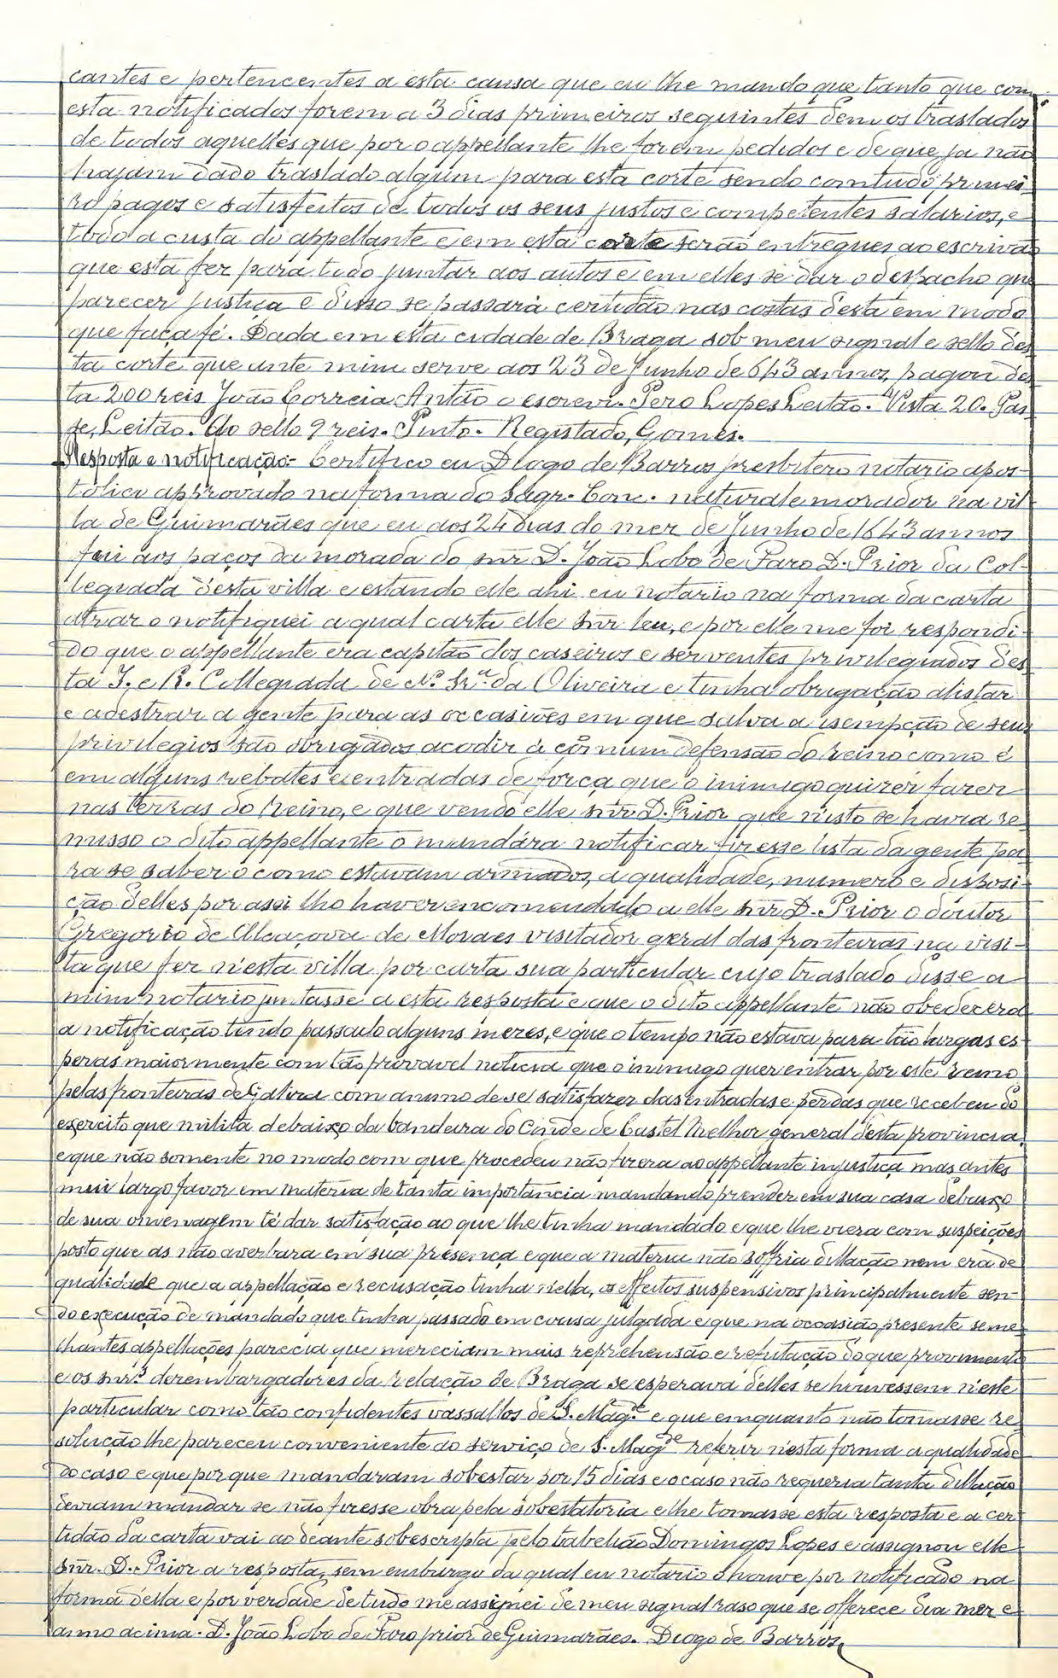 cantes e pertencentes a esta causa que eu lhe mando que tanto que com
esta notificados forem a 3 dias primeiros seguintes dem os traslados
de todos aquelles que por o appellante lhe forem pedidos e de que ja não
hajam dado traslado algum para esta corte sendo comtudo primei-
ro pagos e satisfeitos de todos os seus justos e competentes salarios, e
todo a custa do appellante e em esta corte serão entregues ao escrivão
que esta fez para tudo juntar aos autos e em elles se dar o despacho que
parecer justiça e disso se passará certidão nas costas d'esta em modo
que faça fé. Dada em esta cidade de Braga sob meu signal e sello des-
ta corte que ante mim serve aos 23 de Junho de 643 annos, pagou des-
ta 200 reis João Correia Antão o escrevi. Pero Lopes Leitão. Vista 20. Pas-
se, Leitão. Ao sello 9 reis. Pinto. Registado, Gomes.
Resposta e notificação - Certifico eu Diogo de Barros presbitero notario apos-
tolico approvado na forma do Sagr. Conc. natural e morador na vil-
la de Guimarães que eu aos 24 dias do mez de Junho de 1643 annos
fui aos paços da morada do snr D. João Lobo de Faro D. Prior da Col-
legiada d'esta villa e estando elle ahi eu notario na forma da carta
atraz o notifiquei a qual carta elle snr leu, e por elle me foi respondi-
do que o appellante era capitão dos caseiros e serventes privilegiados des-
ta I. e R. Collegiada de N.ª Sr.ª da Oliveira e tinha obrigação alistar
e adestrar a gente para as occasiões em que salva a isempção de seus
privilegios são obrigados acodir á cõmum defensão do reino como é
em alguns rebates e entradas de força que o inimigo quizer fazer
nas terras do Reino, e que vendo elle snr D. Prior que n'isto se havia re-
misso o dito appellante o mandára notificar fizesse lista da gente pa-
ra se saber o como estavam armados, a qualidade, numero e disposi-
ção d'elles por assi lho haver encomendado a elle snr D. Prior o doutor
Gregorio de Alcaçova de Moraes visitador geral das fronteiras na visi-
ta que fez n'esta villa por carta sua particular cujo traslado disse a
mim notario juntasse a esta resposta e que o dito appellante não obedecera
a notificação tendo passado alguns mezes, e que o tempo não estava para tão largas es-
peras maiormente com tão provavel noticia que o inimigo quer entrar por este reino
pelas fronteiras de Galiza com animo de se satisfazer das entradas e perdas que recebeu do
exercito que milita debaixo da bandeira do Conde de Castel Melhor general d'esta provincia,
e que não somente no modo com que procedeu não fizera ao appellante injustiça mas antes
mui largo favor em materia de tanta importancia mandando prender em sua casa debaixo
de sua omenagem té dar satisfação ao que lhe tinha mandado e que lhe viera com suspeições
posto que as não averbara em sua presença e que a materia não soffria dillação nem era de
qualidade que a appellação e recusação tinha n'ella, os effeitos suspensivos principalmente sen-
do execução de mandado que tinha passado em cousa julgada e que na occasião presente seme-
lhantes appellações parecia que mereciam mais reprehensão e refutação do que provimento
e os snr.ᵉˢ dezembargadores da relação de Braga se esperava d'elles se houvessem n'este
particular como tão confidentes vassallos de S. Mag.ᵈᵉ e que emquanto não tomasse re-
solução lhe pareceu conveniente ao serviço de S. Mag.ᵈᵉ referir n'esta forma a qualidade
do caso e que por que mandaram sobestar por 15 dias e o caso não requeria tanta dillação
deviam mandar se não fizesse obra pela sobestatoria e lhe tomasse esta resposta e a cer-
tidão da carta vai ao deante sobescripta pelo tabelião Domingos Lopes e assignou elle
snr. D. Prior a resposta, sem embargo da qual eu notario o houve por notificado na
forma d'ella e por verdade de tudo me assignei de meu signal raso que se offerece dia mez e
anno acima. D. João Lobo de Faro prior de Guimarães. Diogo de Barros.